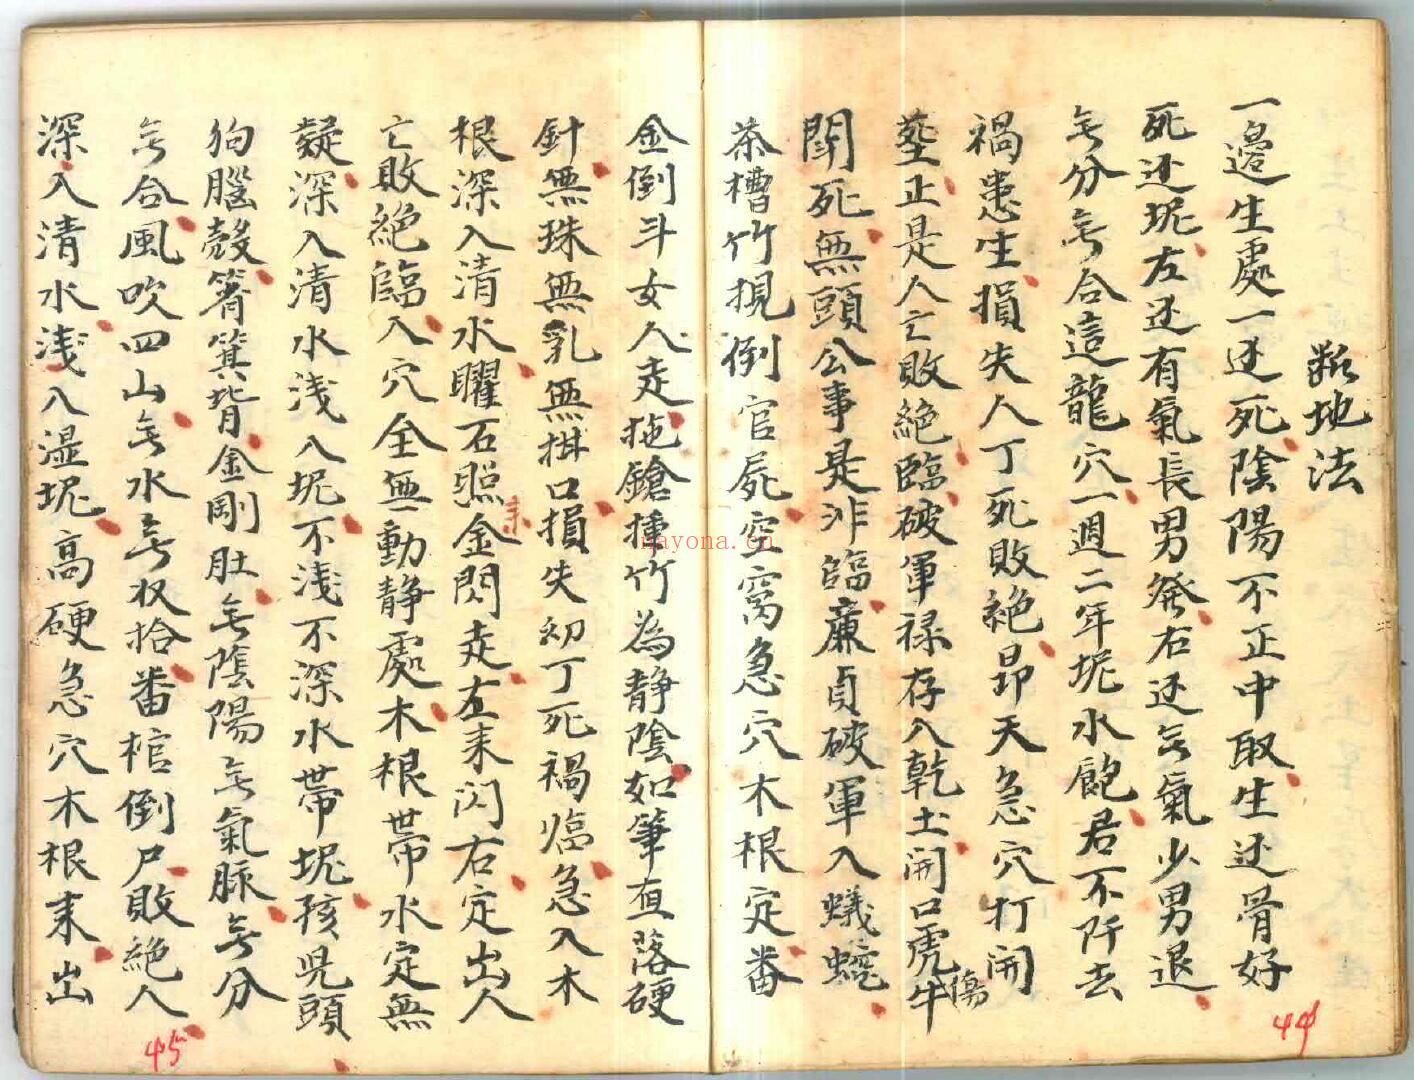 断地法
一邊生處一还死陰陽不正中取生还骨好
死还坭左还有氣長男発右还冇氣少男退
冇分冇合這龍穴一週二年坭水飽君不阡去
禍患生損失人丁死敗絕昂天急穴打開
塟正是人亡敗絕臨破軍禄存入乾土開口虎牛傷
鬪死無頭公事是非臨廉貞破軍入蟻
茶槽竹挸倒官屍空窩急穴木根定番
金倒斗女人走拖鎗捶竹為静陰如筆直落硬
針無珠無乳無拑口損失幼丁死禍临急入木
根深入清水曜石照金閃走左耒闪右定出人
亡敗絕臨入穴全無動静處木根带水定無
疑深入清水浅入坭不浅不深水带坭孩児頭
狗腦殼箐箕背金剛肚冇陰陽冇氣脈冇分
冇合風吹四山冇水冇収拾番棺倒尸敗絕人
深入清水浅入湿坭高硬急穴木根耒出
耒
44
45
jayona.cn